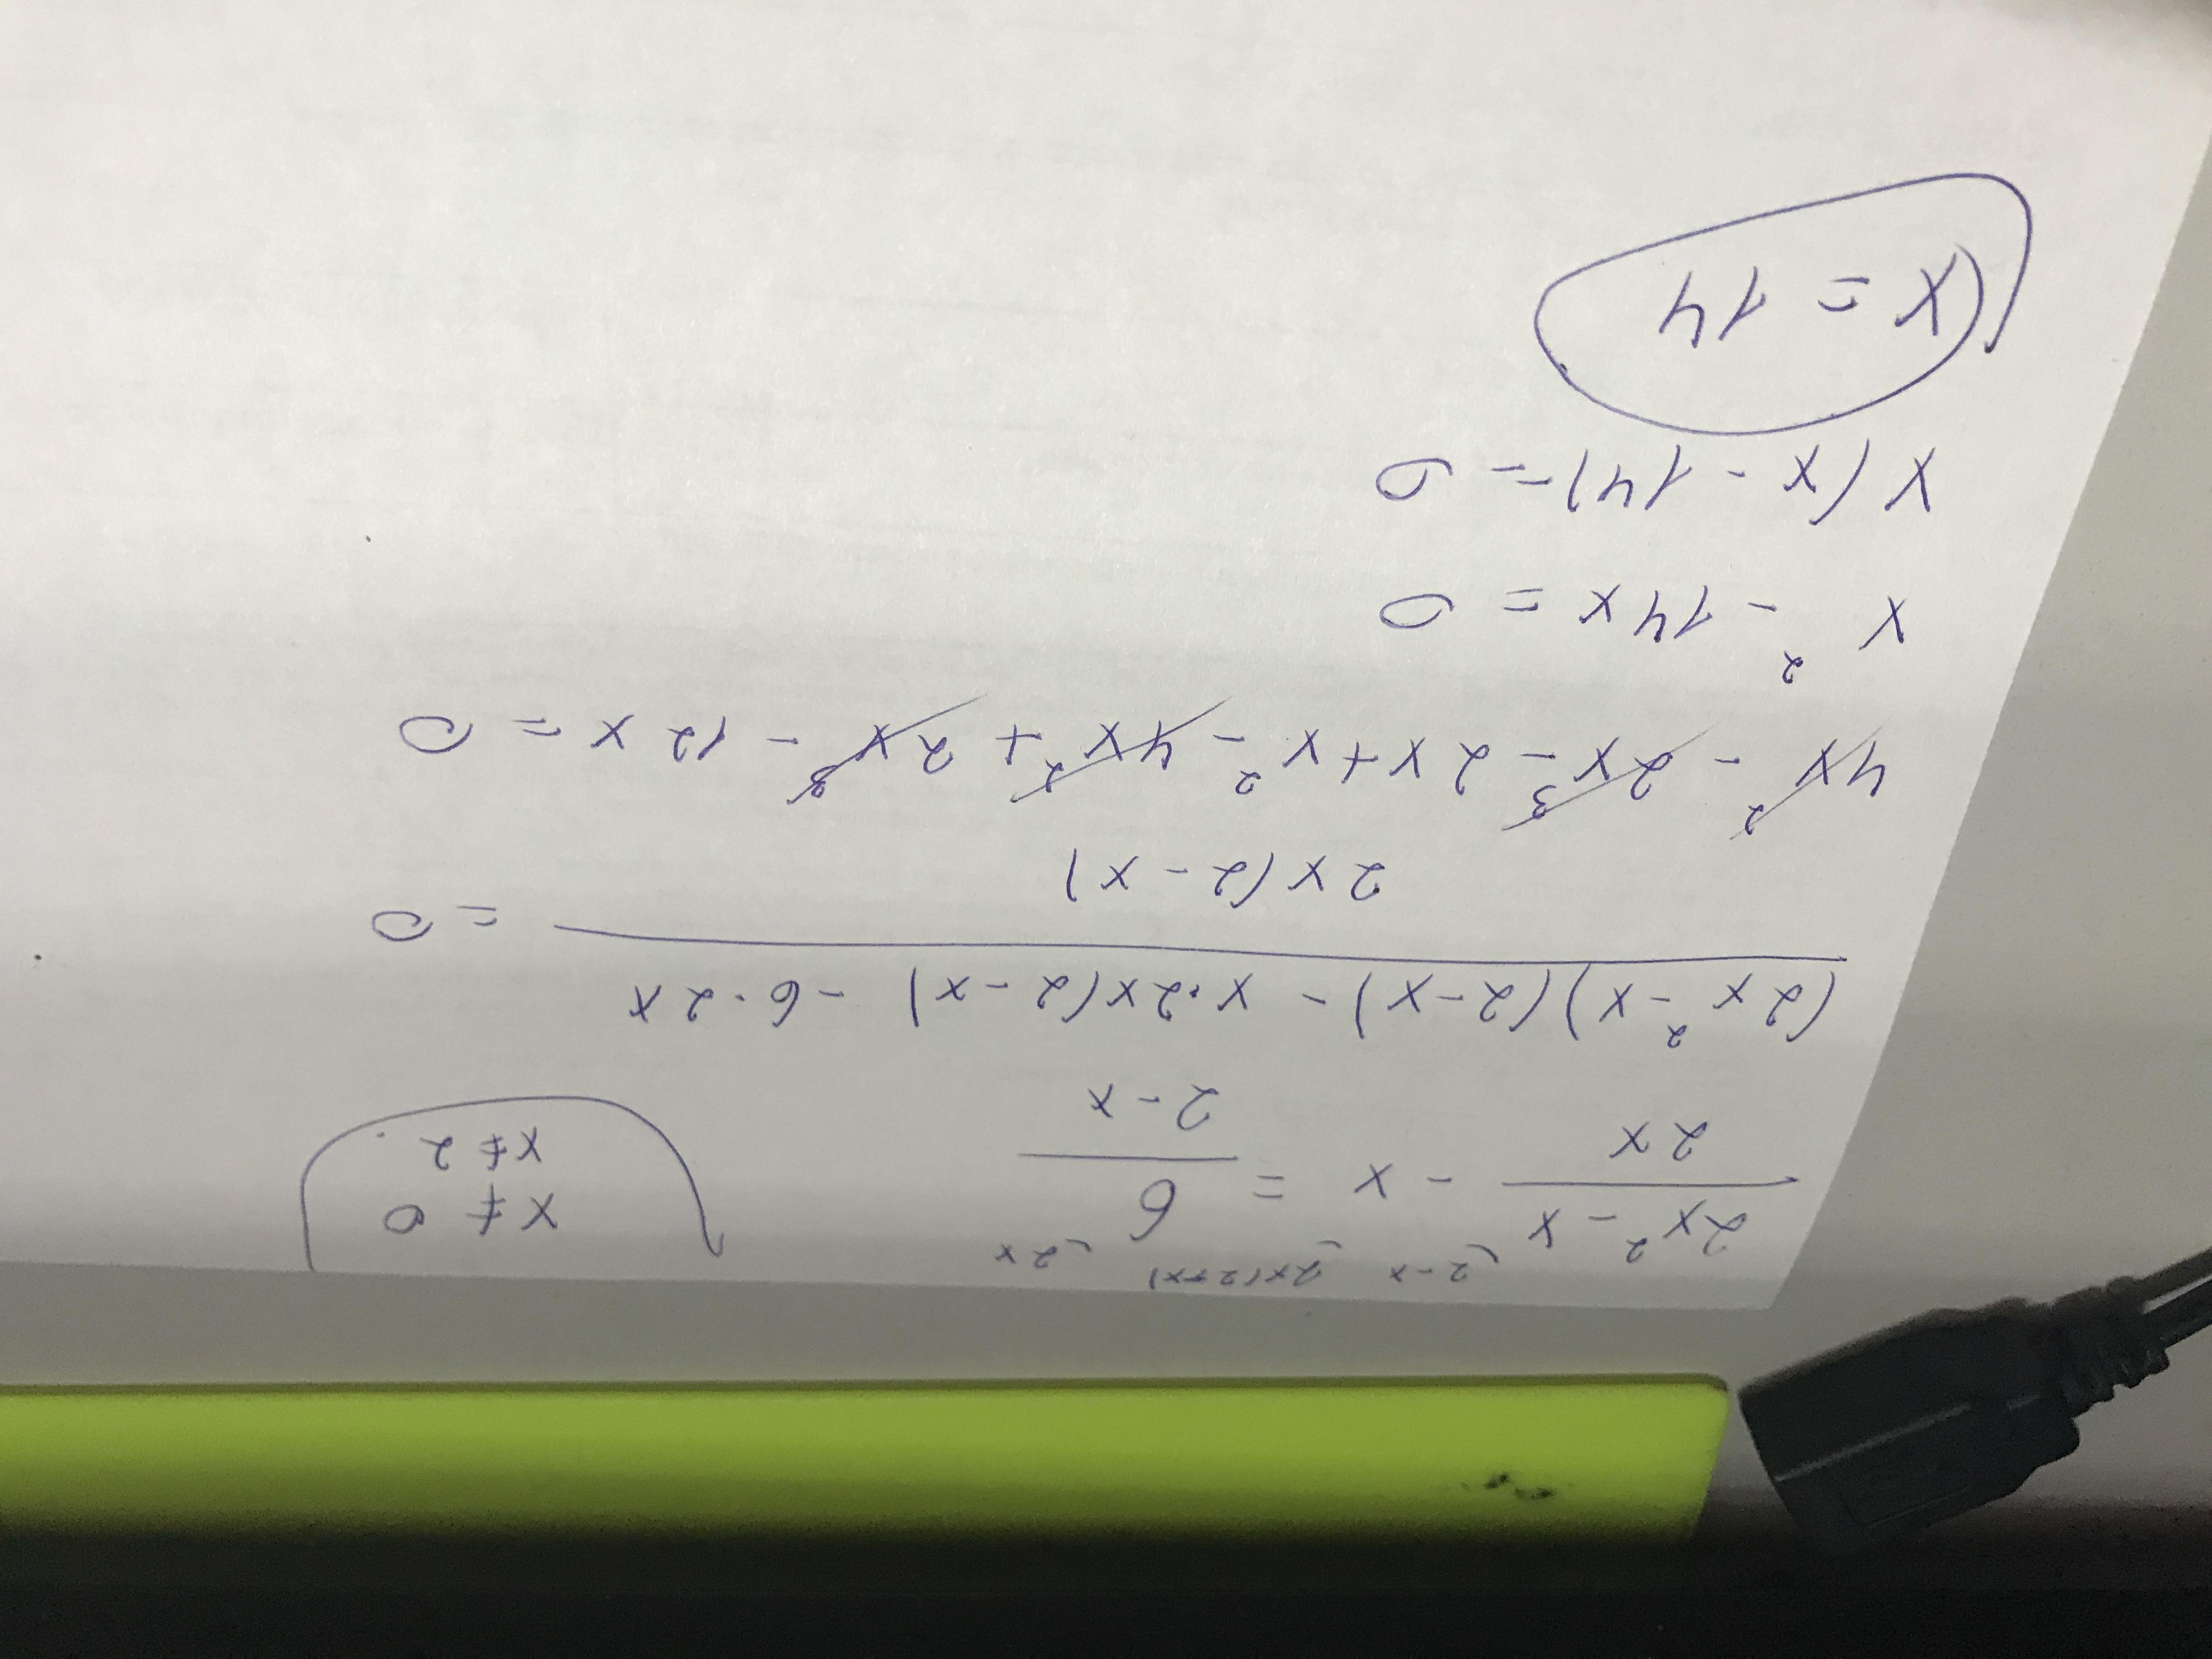 (2-x (2x(2-x) (2x
2x² - x / 2x - x = 6 / 2-x
x ≠ 0
x ≠ 2
(2x² - x)(2-x) - x·2x(2-x) - 6·2x / 2x(2-x) = 0
4x² - 2x³ - 2x + x² - 4x² + 2x³ - 12x = 0
x² - 14x = 0
x(x - 14) = 0
x = 14